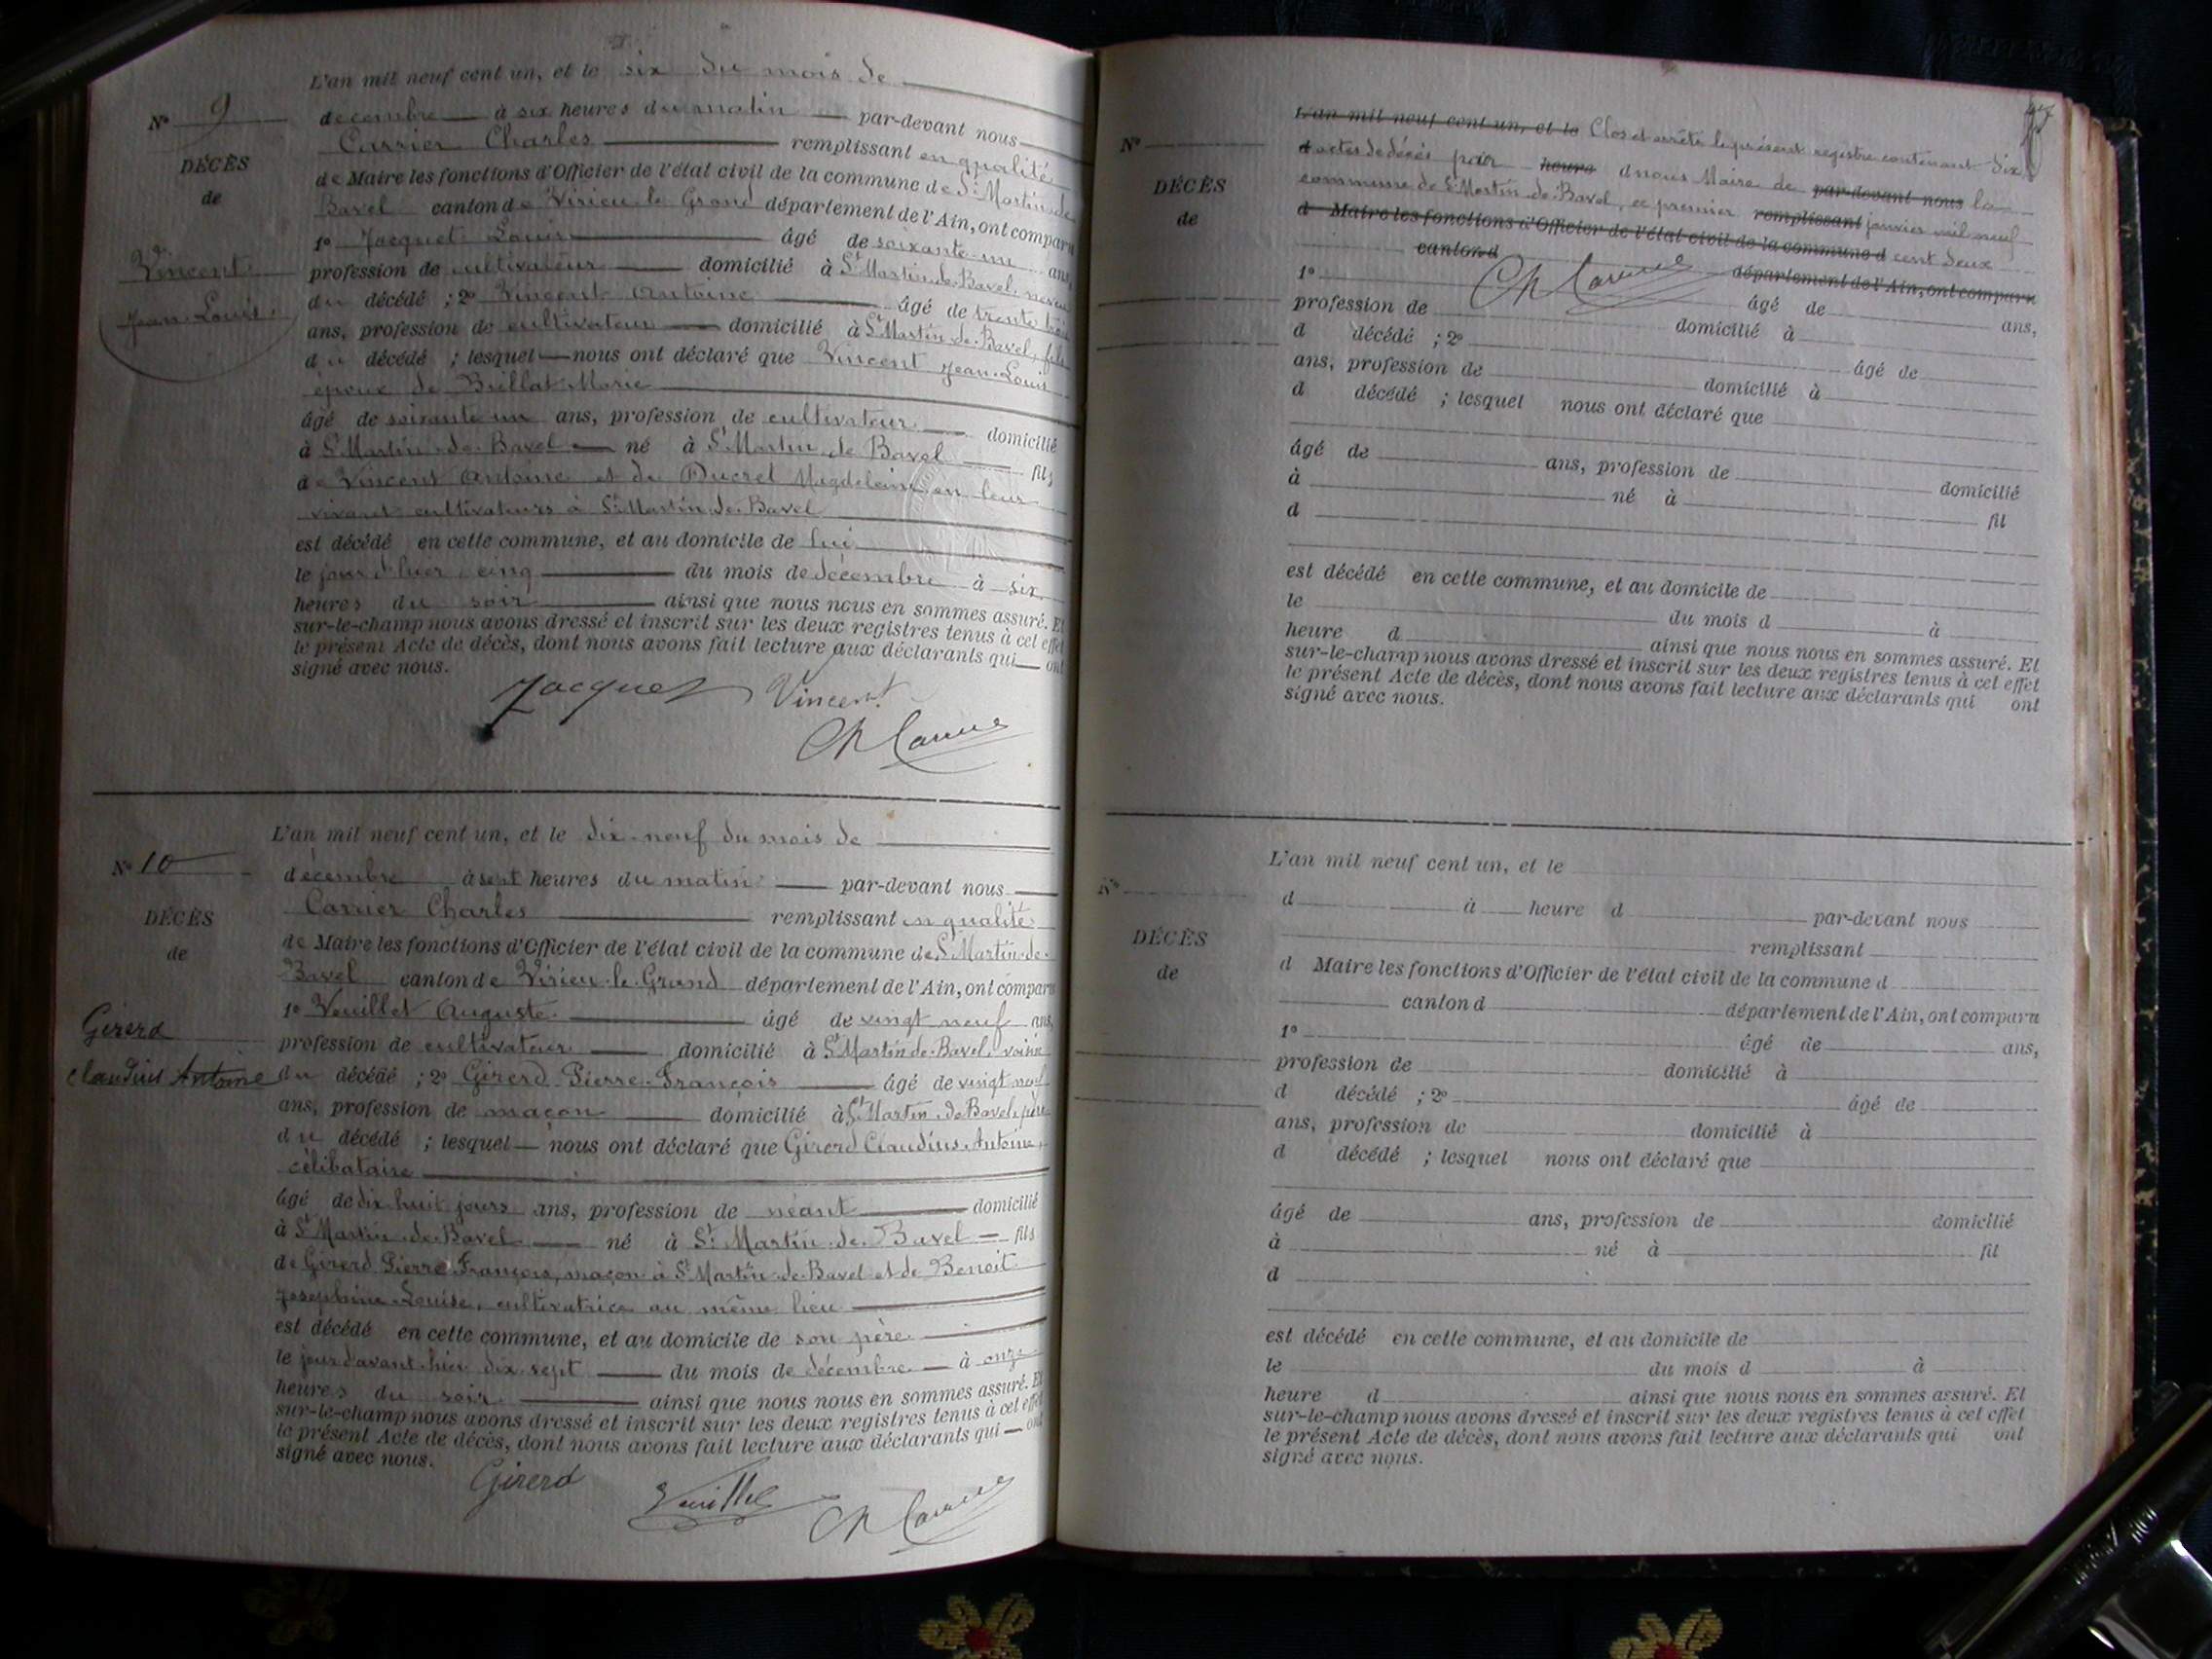 L'an mil neuf cent un, et le six du mois de
N° 9
décembre à six heures du matin par-devant nous
Carrier Charles remplissant en qualité
DÉCÈS
de Maire les fonctions d'Officier de l'état civil de la commune de St Martin de
de
Bavel canton de Virieu le Grand département de l'Ain, ont comparu
1° Jacquet Louis âgé de soixante un ans,
Vincent
profession de cultivateur domicilié à St Martin de Bavel, neveu
Jean Louis
du décédé ; 2° Vincent Antoine âgé de trente trois
ans, profession de cultivateur domicilié à St Martin de Bavel, fils
du décédé ; lesquel nous ont déclaré que Vincent Jean Louis
époux de Brillat Marie
âgé de soixante un ans, profession de cultivateur domicilié
à St Martin de Bavel né à St Martin de Bavel fils
de Vincent Antoine et de Ducrel Magdeleine en leur
vivant cultivateurs à St Martin de Bavel
est décédé en cette commune, et au domicile de lui
le jour d'hier cinq du mois de décembre à six
heures du soir ainsi que nous nous en sommes assuré. Et
sur-le-champ nous avons dressé et inscrit sur les deux registres tenus à cet effet
le présent Acte de décès, dont nous avons fait lecture aux déclarants qui ont
signé avec nous.
Jacquet Vincent
Ch Carrier
L'an mil neuf cent un, et le dix-neuf du mois de
N° 10
décembre à sept heures du matin par-devant nous
Carrier Charles remplissant en qualité
DÉCÈS
de Maire les fonctions d'Officier de l'état civil de la commune de St Martin-de-
de
Bavel canton de Virieu-le-Grand département de l'Ain, ont comparu
1° Veuillet Auguste âgé de vingt neuf ans,
Girerd
profession de cultivateur domicilié à St Martin de Bavel, voisin
Claudius Antoine
du décédé ; 2° Girerd Pierre-François âgé de vingt neuf
ans, profession de maçon domicilié à St Martin de Bavel, père
du décédé ; lesquel nous ont déclaré que Girerd Claudius Antoine,
célibataire
âgé de dix huit jours ans, profession de néant domicilié
à St Martin de Bavel né à St Martin de Bavel fils
de Girerd Pierre François, maçon à St Martin de Bavel et de Benoit
Josephine Louise, cultivatrice au même lieu
est décédé en cette commune, et au domicile de son père
le jour d'avant-hier dix sept du mois de décembre à onze
heures du soir ainsi que nous nous en sommes assuré. Et
sur-le-champ nous avons dressé et inscrit sur les deux registres tenus à cet effet
le présent Acte de décès, dont nous avons fait lecture aux déclarants qui ont
signé avec nous.
Girerd Veuillet Ch Carrier
L'an mil neuf cent un, et le Clos et arrêté le présent registre contenant dix
N°
d actes de décès par heure d nous Maire de par-devant nous la
commune de St Martin-de-Bavel, ce premier remplissant janvier mil neuf
DÉCÈS
d Maire les fonctions d'Officier de l'état civil de la commune d cent deux
de
canton d département de l'Ain, ont comparu
Ch Carrier
1° âgé de ans,
profession de domicilié à
d décédé ; 2° âgé de
ans, profession de domicilié à
d décédé ; lesquel nous ont déclaré que
âgé de ans, profession de domicilié
à né à fil
d
est décédé en cette commune, et au domicile de
le du mois d à
heure d ainsi que nous nous en sommes assuré. Et
sur-le-champ nous avons dressé et inscrit sur les deux registres tenus à cet effet
le présent Acte de décès, dont nous avons fait lecture aux déclarants qui ont
signé avec nous.
L'an mil neuf cent un, et le
N°
d à heure d par-devant nous
remplissant
DÉCÈS
d Maire les fonctions d'Officier de l'état civil de la commune d
de
canton d département de l'Ain, ont comparu
1° âgé de ans,
profession de domicilié à
d décédé ; 2° âgé de
ans, profession de domicilié à
d décédé ; lesquel nous ont déclaré que
âgé de ans, profession de domicilié
à né à fil
d
est décédé en cette commune, et au domicile de
le du mois d à
heure d ainsi que nous nous en sommes assuré. Et
sur-le-champ nous avons dressé et inscrit sur les deux registres tenus à cet effet
le présent Acte de décès, dont nous avons fait lecture aux déclarants qui ont
signé avec nous.